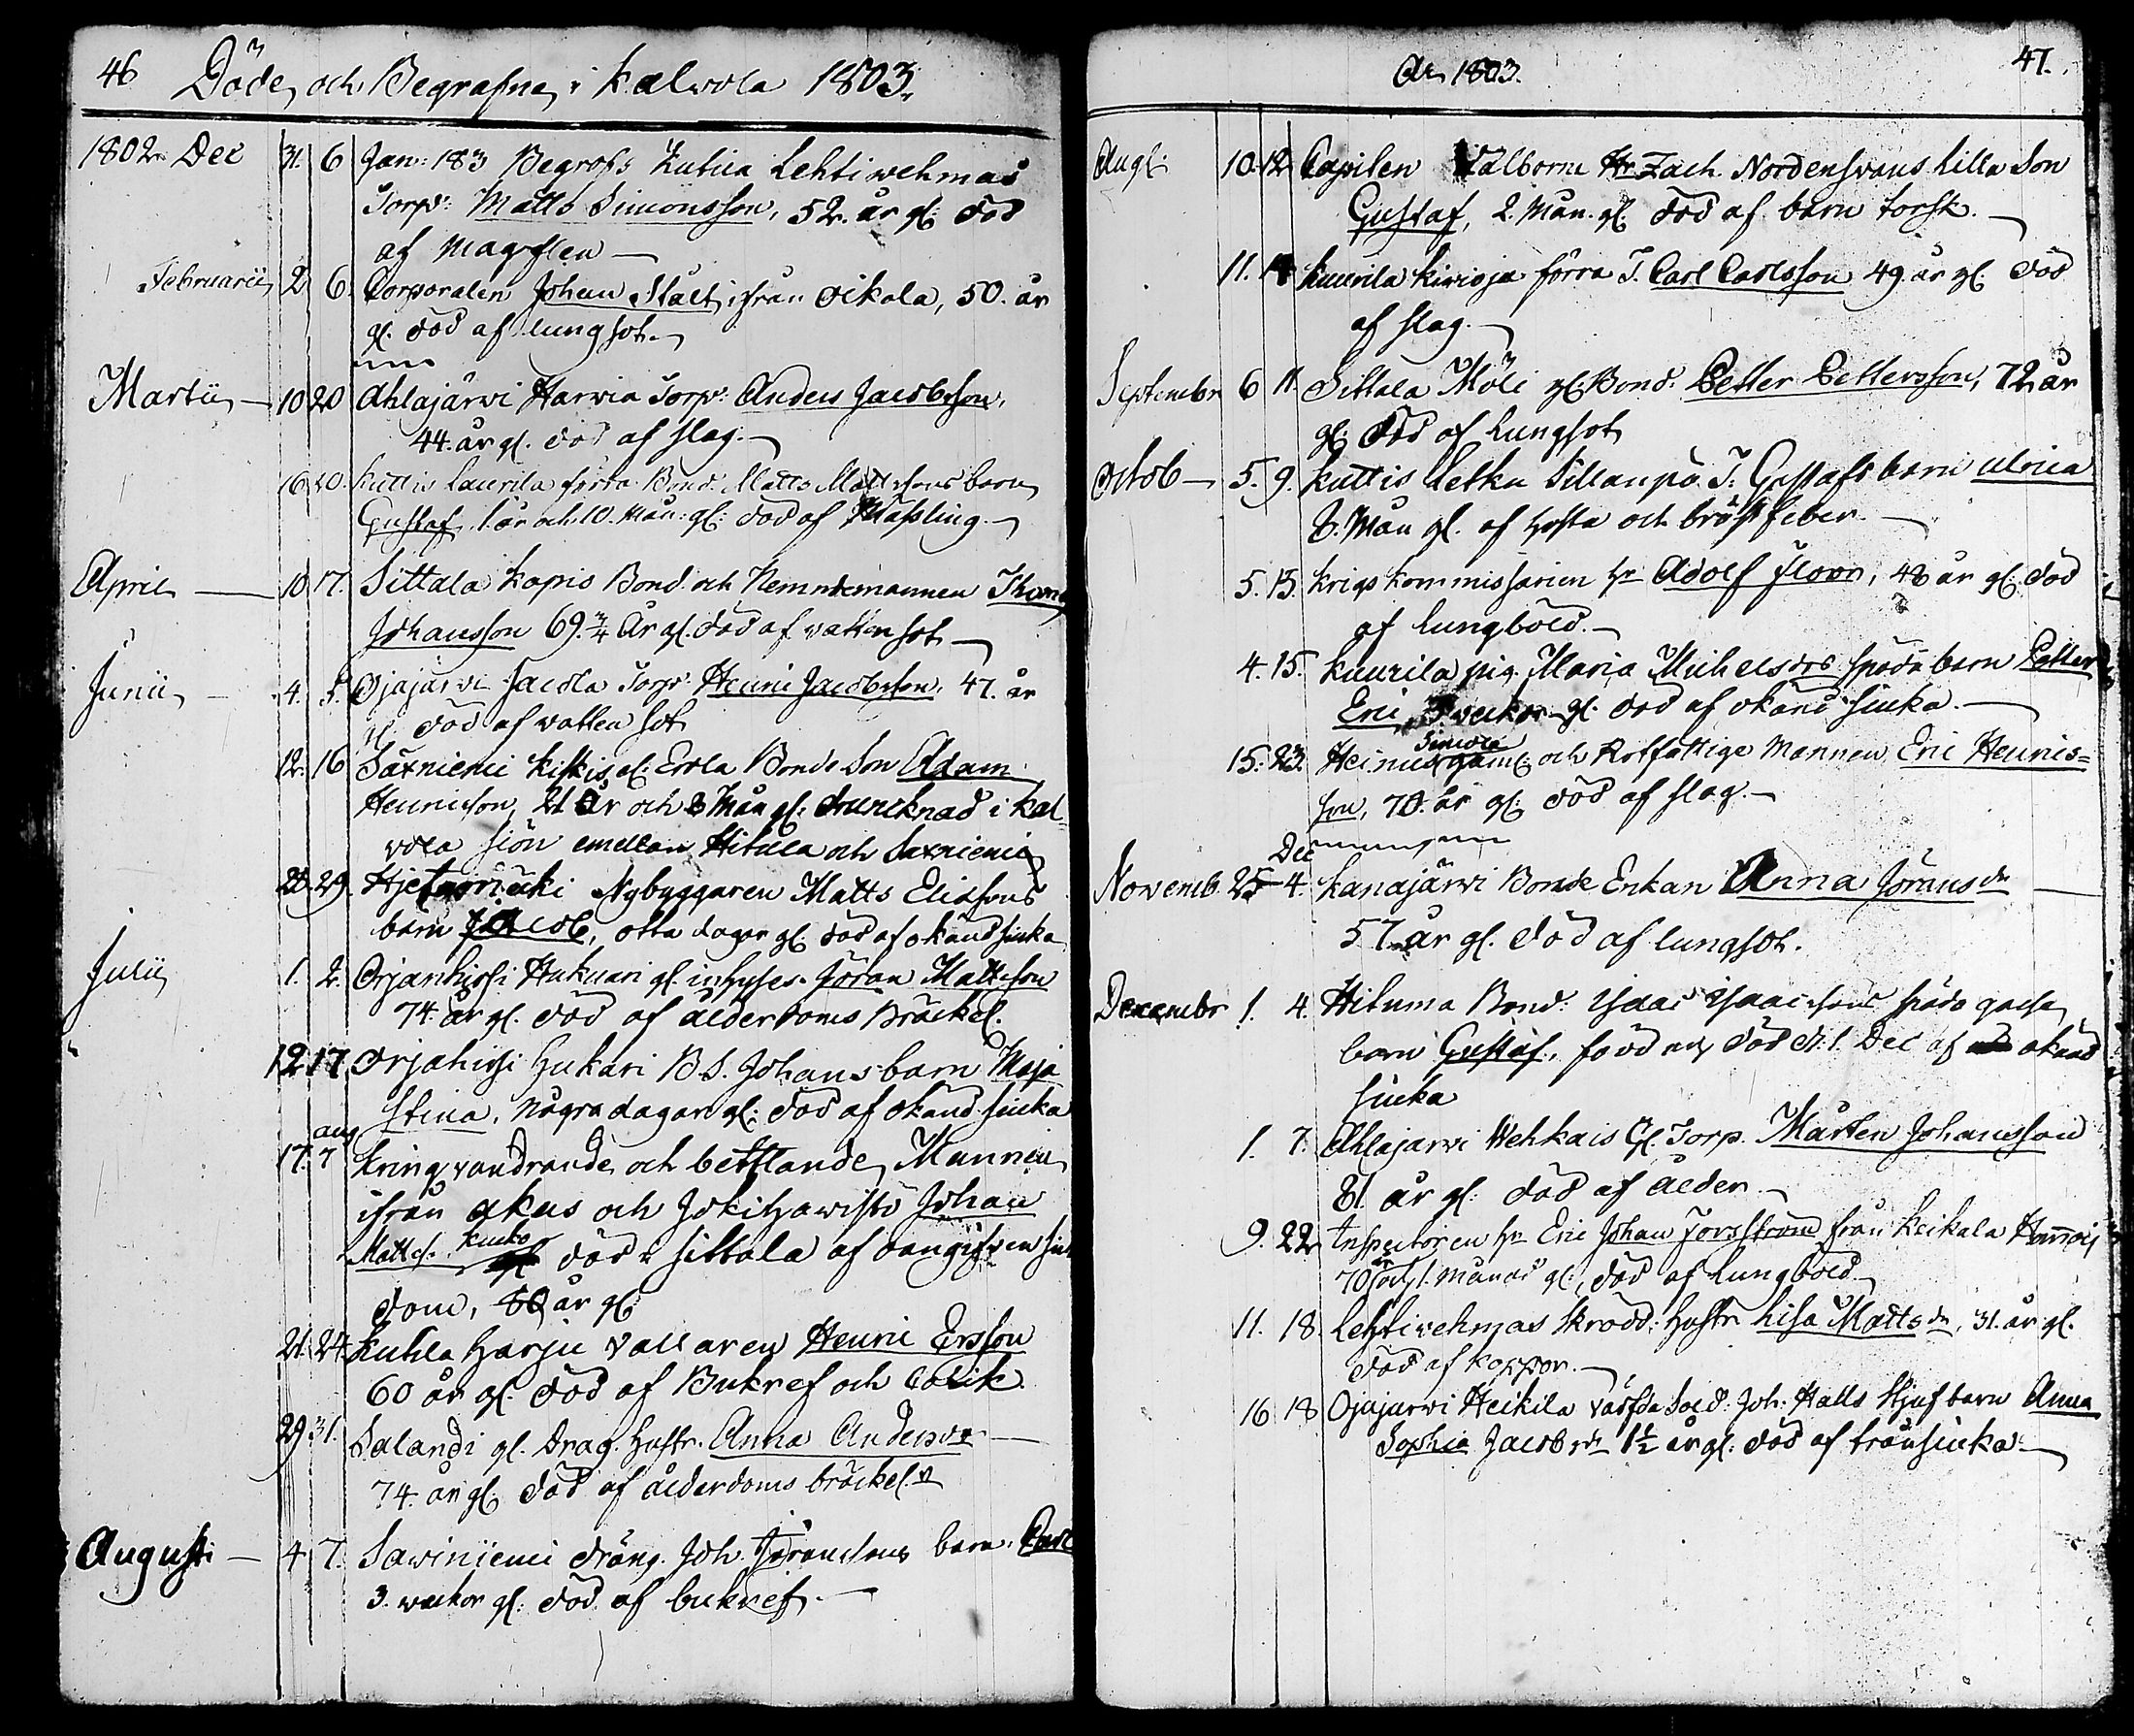 46 Döde och Begrafne i Kalvola 1803.
1802 Dec 31. 6 Jan: 183 Begrofs Lehtiwehmas
Torp: Matts Simonsson, 52. år gl: död
af Magplen
Februarii 2 6. Corporalen Johan Stålt ifrån Oikola, 50. år
gl. död af lungsot.
Martii 10 20 Ahlajärwi Harwia Torp: Anders Jacobsson,
44. år gl. död af slag.
16 20. Kuttis Laurila förra Bond. Matts Mattssons barn
Gustaf, 1 år och 10. Mån: gl: död af Mässling.
April 10 17. Sittala Kopis Bond. och Nemndemannen Thom
Johansson 69. 3/4 År gl. död af vattensot
Junii 4. 5. Ojajärvi Jacola Torp: Henric Jacobsson, 47. år
gl. död af vattensot
12. 16 Saxniemi Kiskis gl: Erola Bonde Son Adam
Henricsson 21 År och 3 Mån gl. drunknad i Kal-
vola sjön emellan Hitula och Saxniemi
28. 29. Nybyggaren Matts Eliæsons
barn Jacob, otta dagar gl. död af okänd siuka
Julii 1. 2. Orjanhirsi Hukuari gl. inhyses. Jöran Mattsson
74. år gl. död af ålderdoms Bräckel.
12 17 Orjahirsi Hukari B.S. Johans barn Maja
Stina, några dagar gl: död af okänd siuka
17. aug 7 Kringvandrande och bettlande Mannen
ifrån Akas och Jokihawisto Johan
Matts. Kucko död i Sittala af oangifven siuk
dom, 80 år gl:
21. 24 Kuhla Harju Vallaren Henric Ersson
60 år gl. död af Bukref och Colik
29 31. Salandi gl. Drag. Hustr. Anna Andersdr
74. år gl. död af ålderdoms bräckel.
Augusti 4 7. Sawiniemi dräng. Joh. Jöranssons barn. Carl
3. veckor gl: död af bukref.
År 1803. 47.
Augl. 10. 12 Capiten Välborne Hr Zach Nordensvans lilla Son
Gustaf, 2. Mån. gl. död af barn torsk.
11. 14 Kuurila Kiwioja förra T. Carl Carlsson 49. år gl. död
af slag.
Septembr 6 11. Sittala Möli gl: Bond. Petter Pettersson, 72 år
gl: död af Lungsot
Octob 5. 9. Kuttis Retku Sillanpä T. Gustafs barn Ulrica
8. Mån gl. af hosta och bröstfeber.
5. 15. Krigs Kommissarien Hr Adolf Floor, 48 år gl: död
af Lungböld.
4. 15. Kuurila pig. Maria Michelsdrs späda barn Petter
Eric, veckor gl. död af okänd siuka.
Simola
15. 23. Heinus gaml: och Rotfattige Mannen Eric Henrics=
son, 70. år gl: död af slag.
Dec
Novemb. 25 4. Kanajärvi Bonde Enkan Anna Jöransdr
57 år gl. död af lungsot.
Decembr 1. 4. Hituma Bond: Isaac Isaacssons späda gosse
barn Gustaf, född och död d. 1. Dec af okänd
siuka
1. 7. Ahlajarvi Wehkais Gl. Torp. Mårten Johansson
81 år gl: död af ålder.
9. 22 Inspectoren Hr Eric Johan Forsström från Keikala Hannoij
70 år och 1. månad gl:, död af Lungböld.
11. 18. Lehtiwehmas Skrädd: Hustr Lisa Mattsdr, 31. år gl.
död af koppor.
16 18 Ojajarvi Heikila värfda Sold: Joh. Halls Stjufbarn Anna
Sophia Jacobsdr 1 1/2 år gl: död af trånsiuka